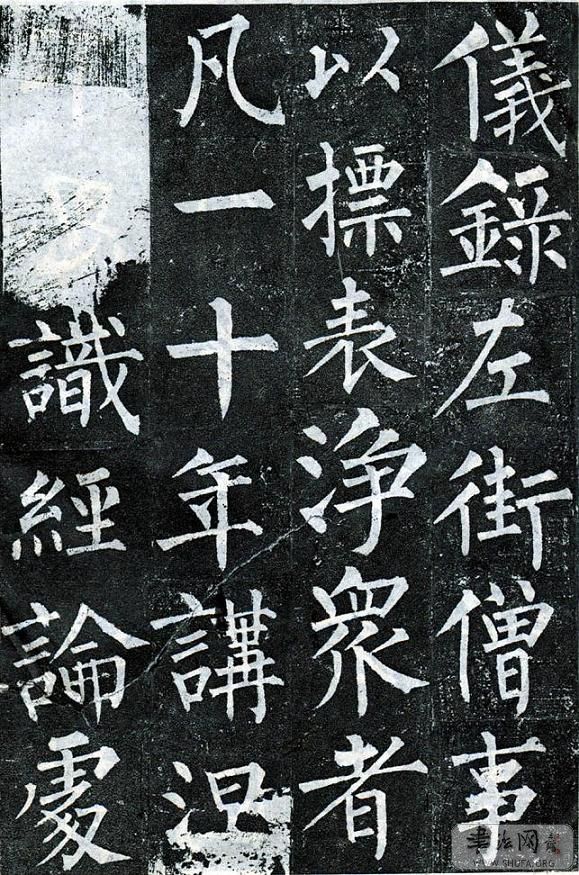 儀錄左街僧事
以標表淨衆者
凡一十年講涅
識經論處
书法网
WWW.SHUFA.ORG